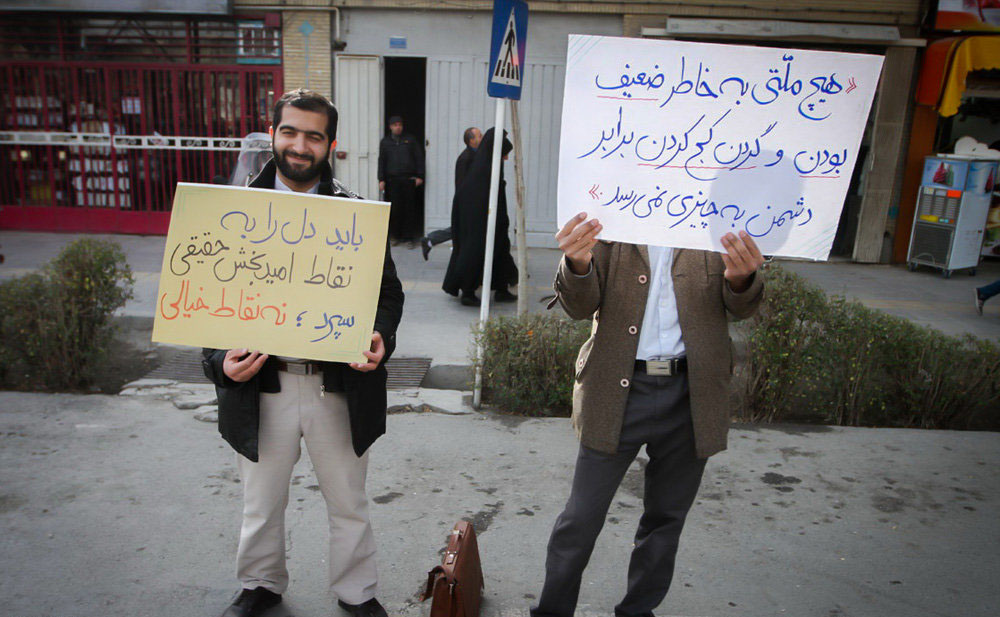 باید دل را به
نقاط امیدبخش حقیقی
سپرد ؛ نه نقاط خیالی
«هیچ ملّتی به خاطر ضعیف
بودن و گردن کج کردن برابر
دشمن به چیزی نمی رسد.»